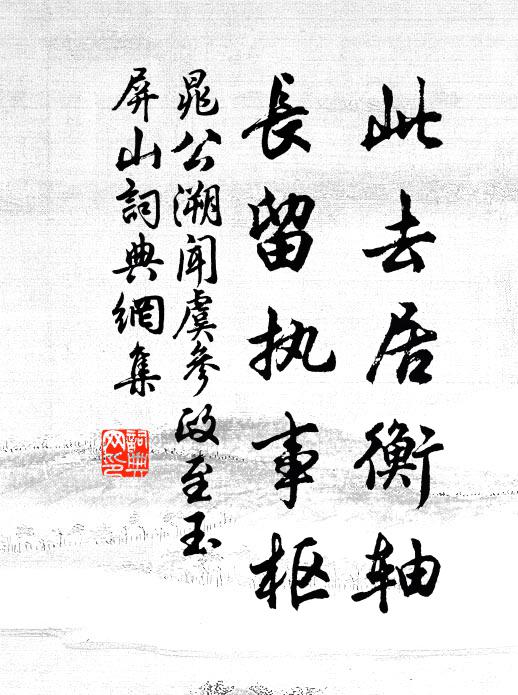 此去居衡轴
長留执事枢
晁公溯闻虞參政至玉
屏山詞典網集
詞典
网印